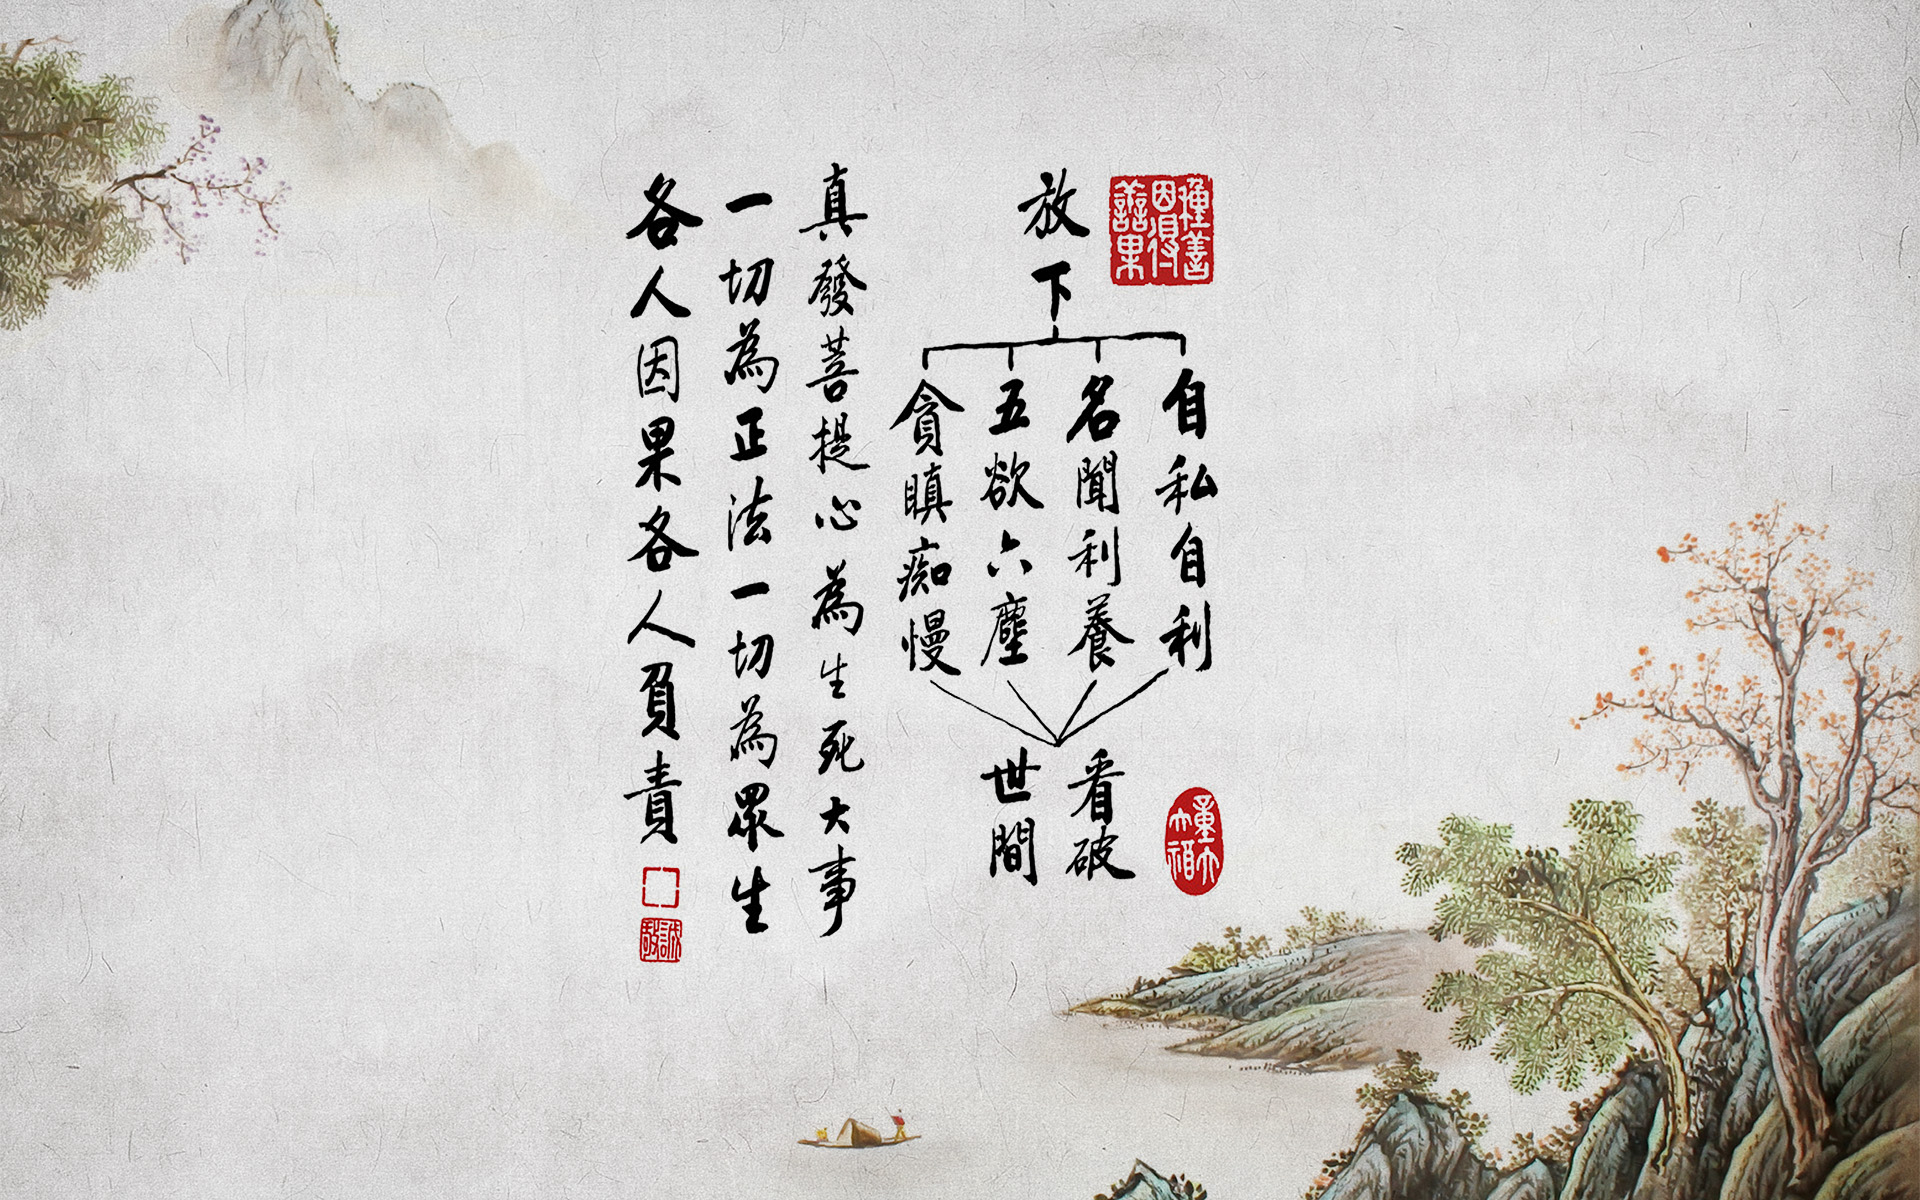 種善
因得
善果
放下
自私自利
名聞利養
五欲六塵
貪瞋痴慢
看破
世間
真發菩提心為生死大事
一切為正法一切為眾生
各人因果各人負責